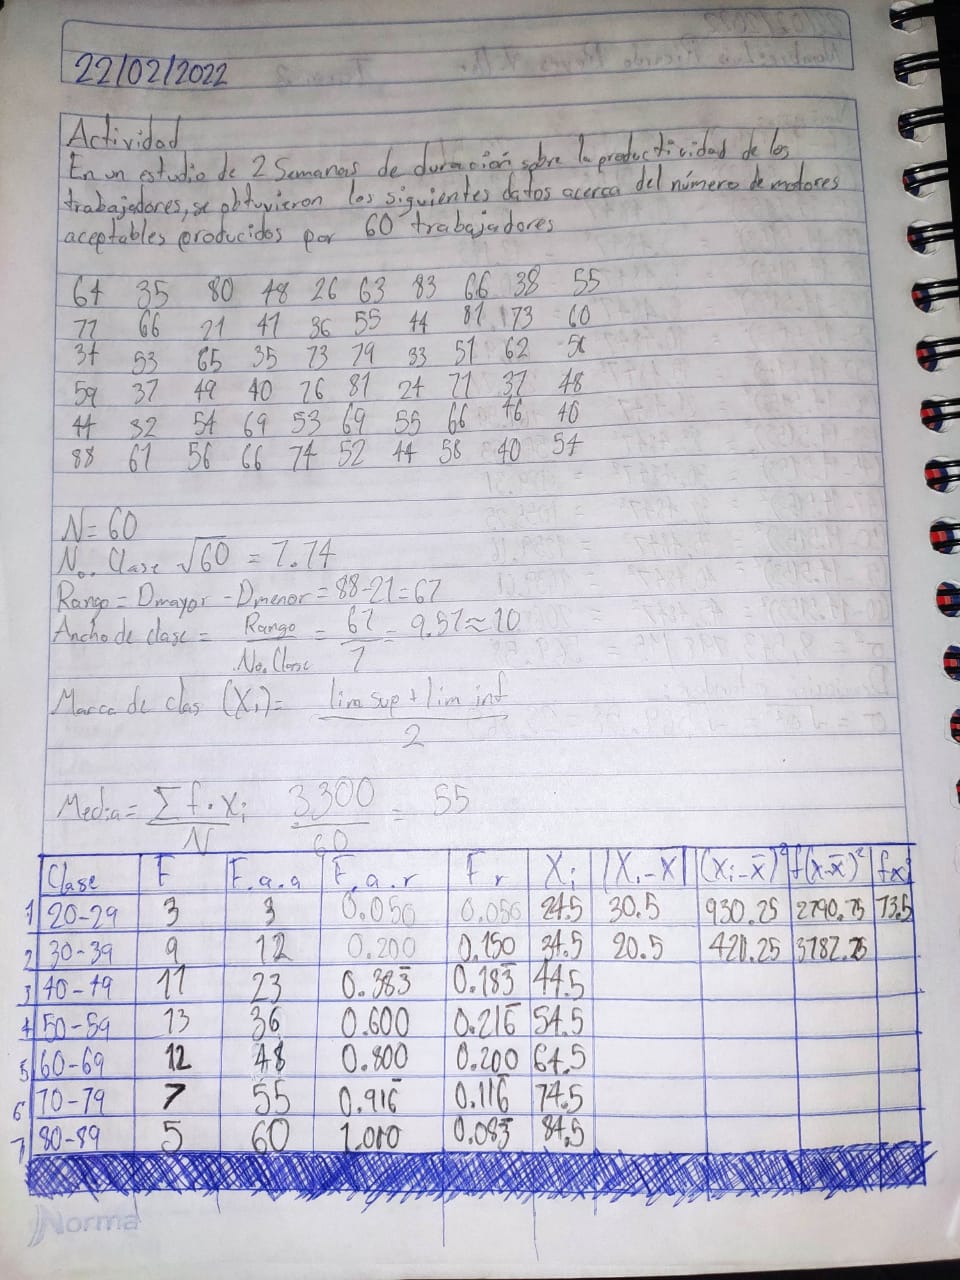 22/02/2022
Actividad
En un estudio de 2 Semanas de duración sobre la productividad de los
trabajadores, se obtuvieron los siguientes datos acerca del número de motores
aceptables producidos por 60 trabajadores
64 35 80 48 26 63 83 66 38 55
77 66 21 47 36 55 44 81 73 60
34 53 65 35 73 79 33 51 62 56
59 37 49 40 76 81 24 71 37 48
44 32 54 69 53 69 55 66 46 40
88 61 56 66 74 52 44 58 40 54
N=60
No. Clase √60 = 7.74
Rango = Dmayor - Dmenor = 88-21=67
Ancho de clase = Rango/No. Clase = 67/7 = 9.57≈10
Marca de clas (Xi)= lim sup + lim inf/2
Media= ∑ f·xi/N 3300/60 = 55
Clase F F.a.a F.a.r Fr Xi |Xi-x̄| (xi-x̄)² f(x-x̄)² fx
1 20-29 3 3 0.050 0.050 24.5 30.5 930.25 2790.75 73.5
2 30-39 9 12 0.200 0.150 34.5 20.5 420.25 3782.25
3 40-49 11 23 0.383̄ 0.183̄ 44.5
4 50-59 13 36 0.600 0.216̄ 54.5
5 60-69 12 48 0.800 0.200 64.5
6 70-79 7 55 0.916̄ 0.116̄ 74.5
7 80-89 5 60 1.000 0.083̄ 84.5
Norma